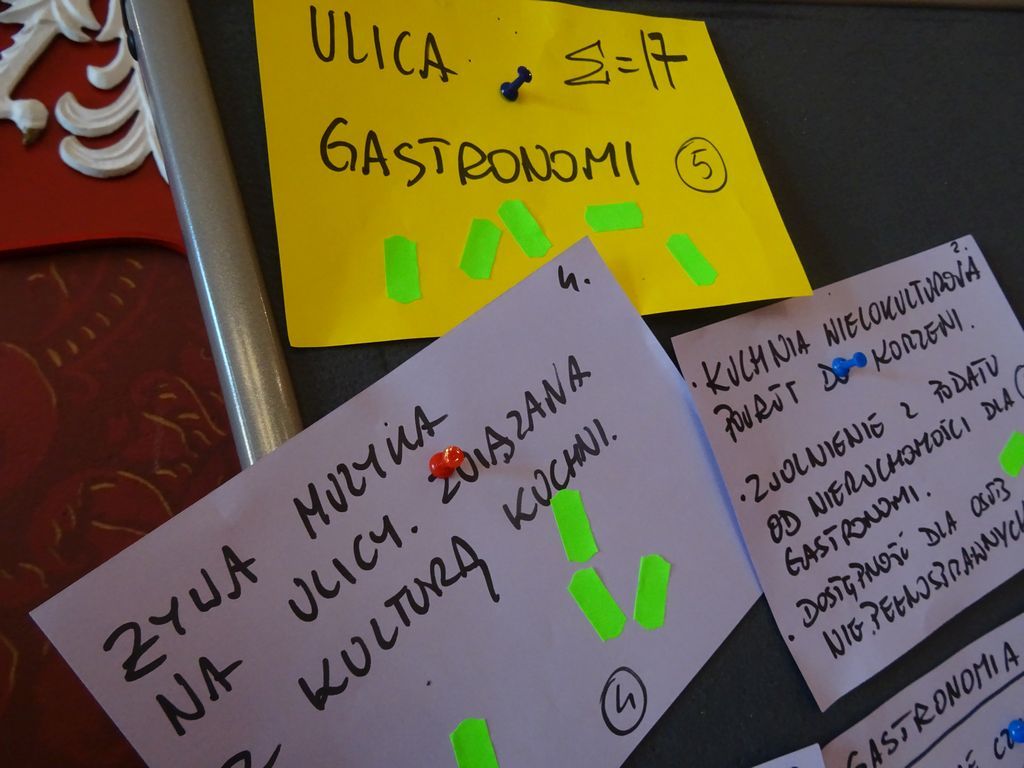 ULICA Σ=17
GASTRONOMI 5
4.
ŻYWA MUZYKA
NA ULICY. ZWIĄZANA
KULTURĄ KUCHNI.
4
2.
• KUCHNIA WIELOKULTUROWA
POWRÓT DO KORZENI.
• ZWOLNIENIE Z PODATU
OD NIERUCHOMOŚCI DLA
GASTRONOMI.
• DOSTĘPNOŚĆ DLA OSÓB
NIEPEŁNOSPRAWNYCH
GASTRONOMIA